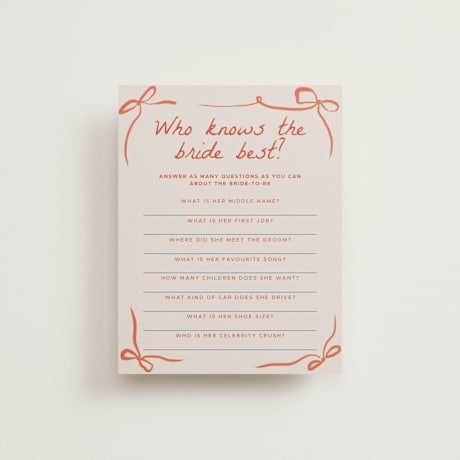 Who knows the
bride best?
ANSWER AS MANY QUESTIONS AS YOU CAN
ABOUT THE BRIDE-TO-BE
WHAT IS HER MIDDLE NAME?
WHAT IS HER FIRST JOB?
WHERE DID SHE MEET THE GROOM?
WHAT IS HER FAVOURITE SONG?
HOW MANY CHILDREN DOES SHE WANT?
WHAT KIND OF CAR DOES SHE DRIVE?
WHAT IS HER SHOE SIZE?
WHO IS HER CELEBRITY CRUSH?